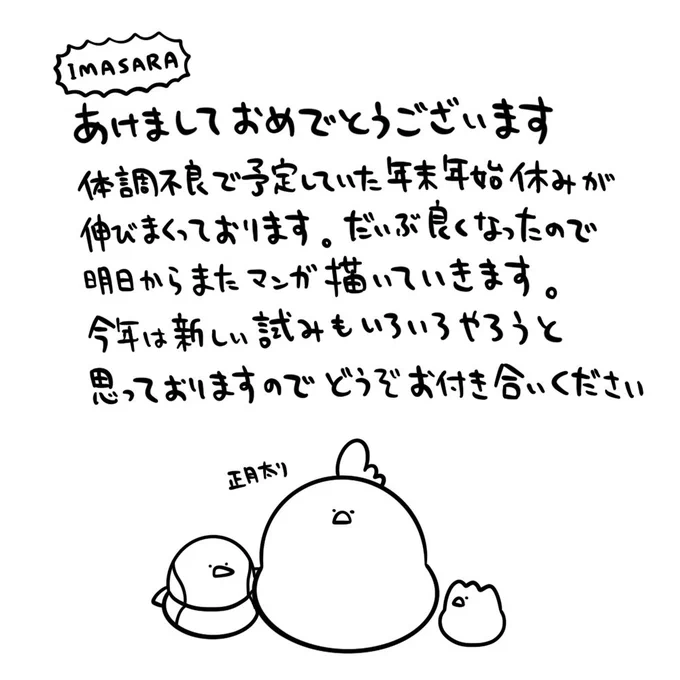 IMASARA
あけましておめでとうございます
体調不良で予定していた年末年始休みが
伸びまくっております。だいぶ良くなったので
明日からまたマンガ描いていきます。
今年は新しい試みもいろいろやろうと
思っておりますのでどうぞお付き合いください
正月太り